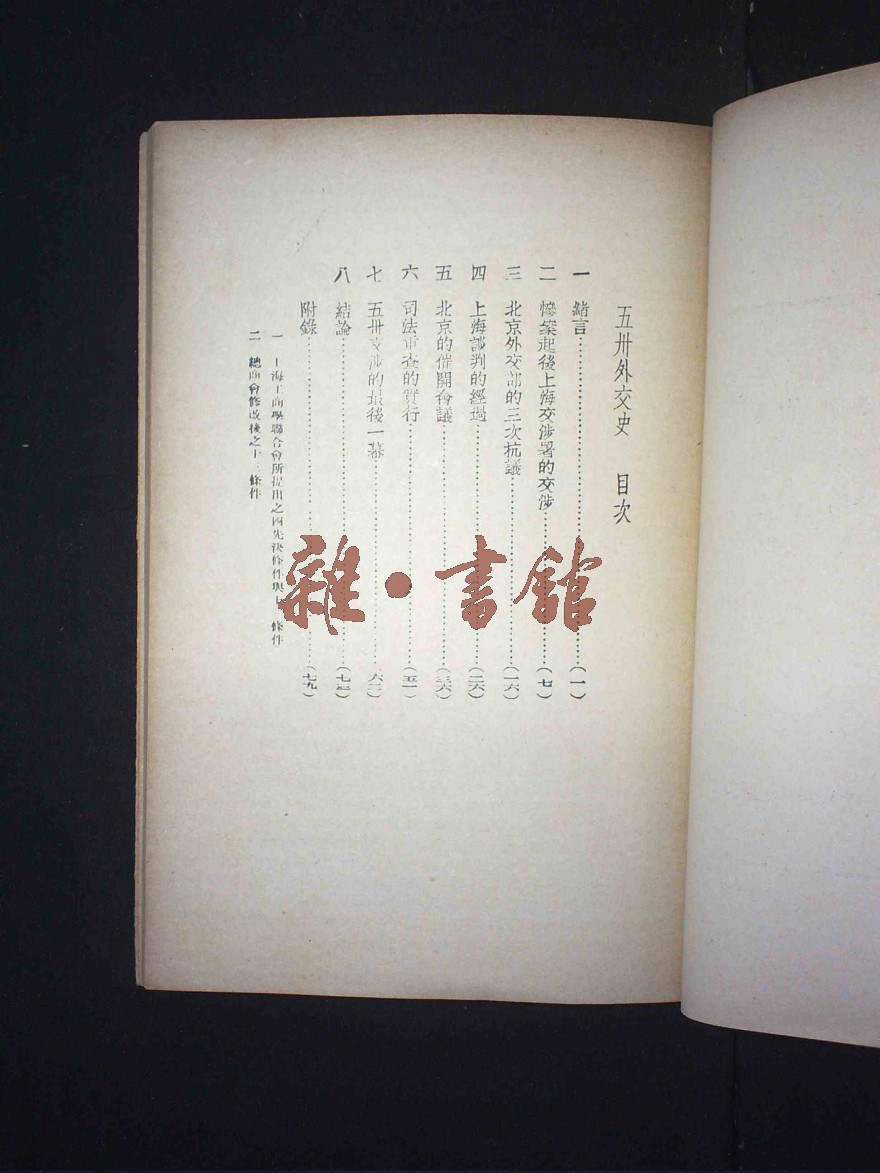 五卅外交史　目次
一　緒言……(一)
二　慘案起後上海交涉署的交涉……(七)
三　北京外交部的三次抗議……(一六)
四　上海談判的經過……(二六)
五　北京的催開會議……(三六)
六　司法重查的實行……(五一)
七　五卅交涉的最後一幕……(六二)
八　結論……(七三)
附錄……(七九)
一　上海工商學聯合會所提出之四先決條件與十　條件
二　總商會修改後之十三條件
雜·書館